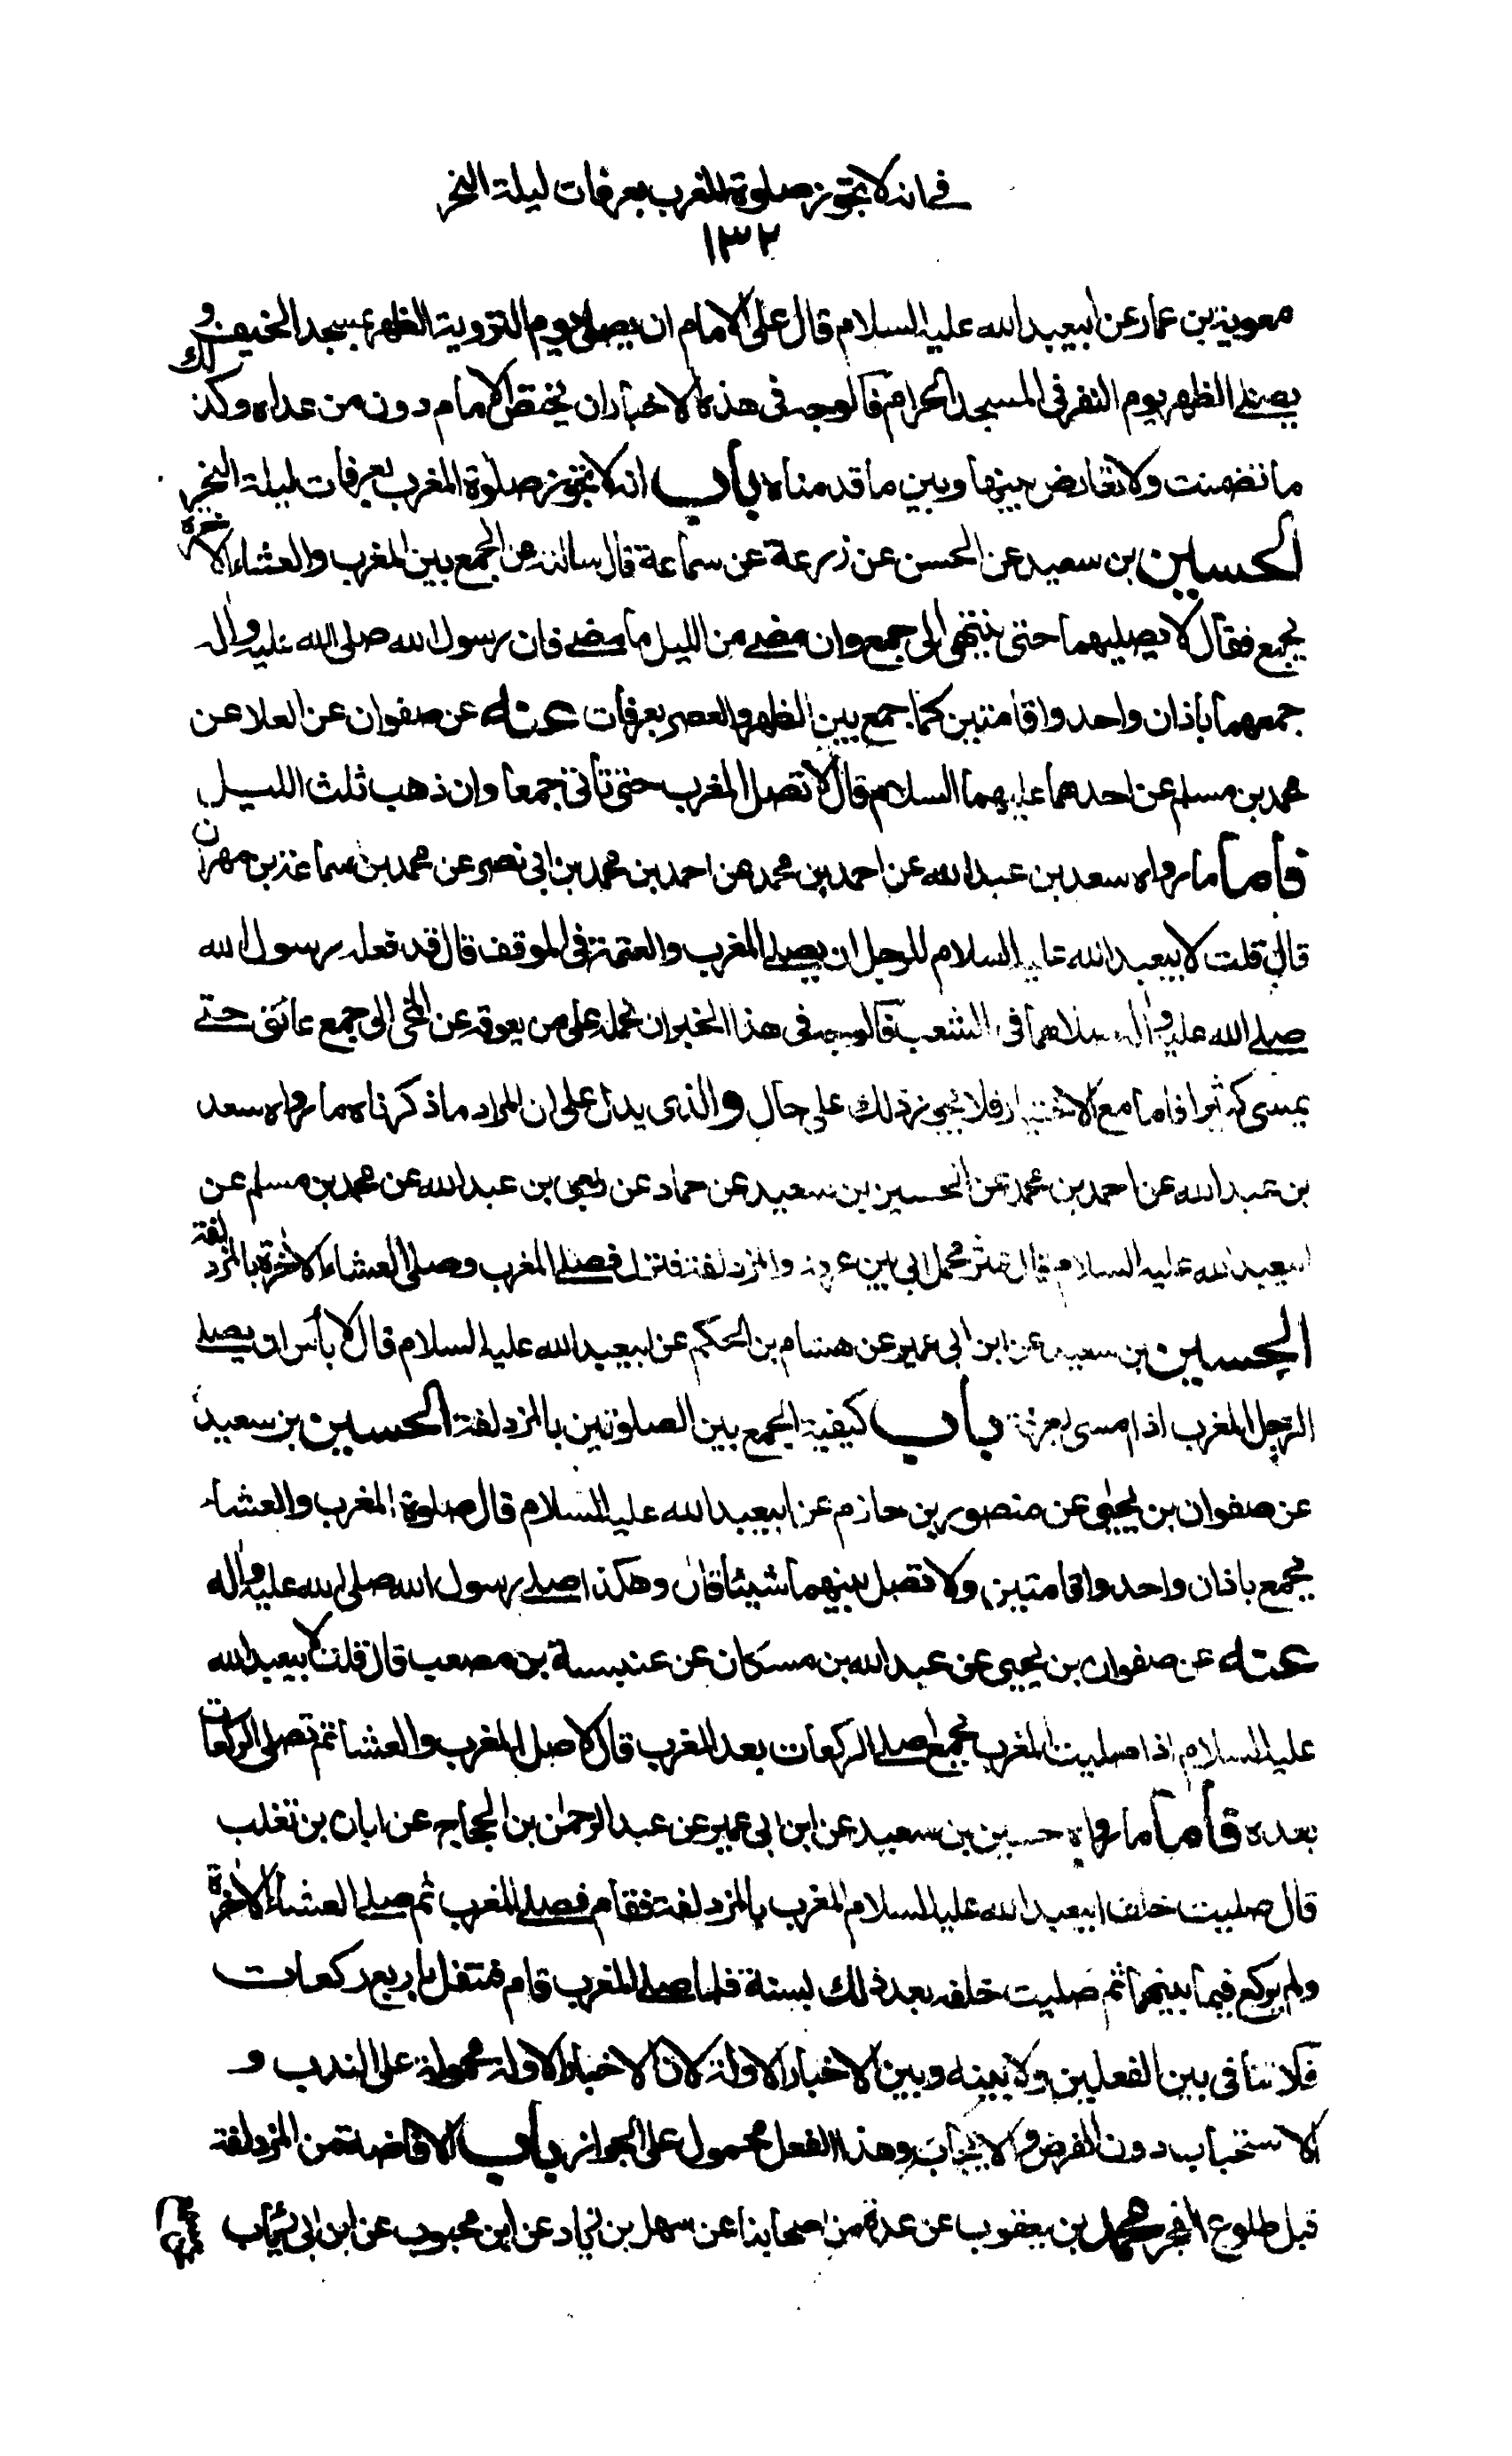 في انه لا تجوز صلوة المغرب بعرفات ليلة النحر
١٣٢
معوية بن عمار عن ابيعبد الله عليه السلام قال على الامام ان يصلى يوم التروية الظهر بمسجد الخيف و
يصلى الظهر يوم النفر فى المسجد الحرام فالوجه فى هذه الاخبار ان يختص الامام دون من عداه وكذلك
ما تضمنت ولا تعارض بينها وبين ما قدمناه باب انه لا تجوز صلوة المغرب بعرفات ليلة النحر
الحسين بن سعيد عن الحسن عن زرعة عن سماعة قال سالته عن الجمع بين المغرب والعشاء الاخرة
بجمع فقال لا يصليهما حتى ينتهى الى جمع وان مضى من الليل ما مضى فان رسول الله صلى الله عليه واله
جمعهما باذان واحد واقامتين كما جمع بين الظهر والعصر بعرفات عنه عن صفوان عن العلا عن
محمد بن مسلم عن احدهما عليهما السلام قال لا تصل المغرب حتى تأتى جمعا وان ذهب ثلث الليل
فاما ما رواه سعد بن عبد الله عن احمد بن محمد عن احمد بن محمد بن ابى نصر عن محمد بن سماعة بن مهران
قال قلت لابيعبد الله عليه السلام للرجل ان يصلى المغرب والعتمة فى الموقف قال قد فعله رسول الله
صلى الله عليه واله صلاهما فى الشعب فالوجه فى هذا الخبر ان نحمله على من يعوقه عن المجئ الى جمع عائق حتى
يمسى كثيرا فاما مع الاختيار فلا يجوز ذلك على حال والذى يدل على ان المراد ما ذكرناه ما رواه سعد
بن عبد الله عن احمد بن محمد عن الحسين بن سعيد عن حماد عن ربعى بن عبد الله عن محمد بن مسلم عن
ابيعبد الله عليه السلام قال عثر محمل ابى بين عرفة والمزدلفة فنزل فصلى المغرب وصلى العشاء الاخرة بالمزدلفة
الحسين بن سعيد عن ابن ابى عمير عن هشام بن الحكم عن ابيعبد الله عليه السلام قال لا بأس ان يصلى
الرجل المغرب اذا امسى بعرفة باب كيفية الجمع بين الصلوتين بالمزدلفة الحسين بن سعيد
عن صفوان بن يحيى عن منصور بن حازم عن ابيعبد الله عليه السلام قال صلوة المغرب والعشاء
بجمع باذان واحد واقامتين ولا تصل بينهما شيئا قال وهكذا صلى رسول الله صلى الله عليه واله
عنه عن صفوان بن يحيى عن عبد الله بن مسكان عن عنبسة بن مصعب قال قلت لابيعبد الله
عليه السلام اذا صليت المغرب بجمع اصلى الركعات بعد المغرب قال لا صل المغرب والعشا ثم تصلى الركعات
بعده فاما ما رواه حسين بن سعيد عن ابن ابى عمير عن عبد الرحمن بن الحجاج عن ابان بن تغلب
قال صليت خلف ابيعبد الله عليه السلام المغرب بالمزدلفة فقام فصلى المغرب ثم صلى العشاء الاخرة
ولم يركع فيما بينهما ثم صليت خلفه بعد ذلك بسنة فلما صلى المغرب قام فتنفل باربع ركعات
فلا تنافى بين الفعلين ولا بينه وبين الاخبار الاولة لان الاخبار الاولة محمولة على الندب و
الاستحباب دون الفرض والايجاب وهذا الفعل محمول على الجواز باب الافاضة من المزدلفة
قبل طلوع الفجر محمد بن يعقوب عن عدة من اصحابنا عن سهل بن زياد عن ابن محبوب عن ابن رئاب